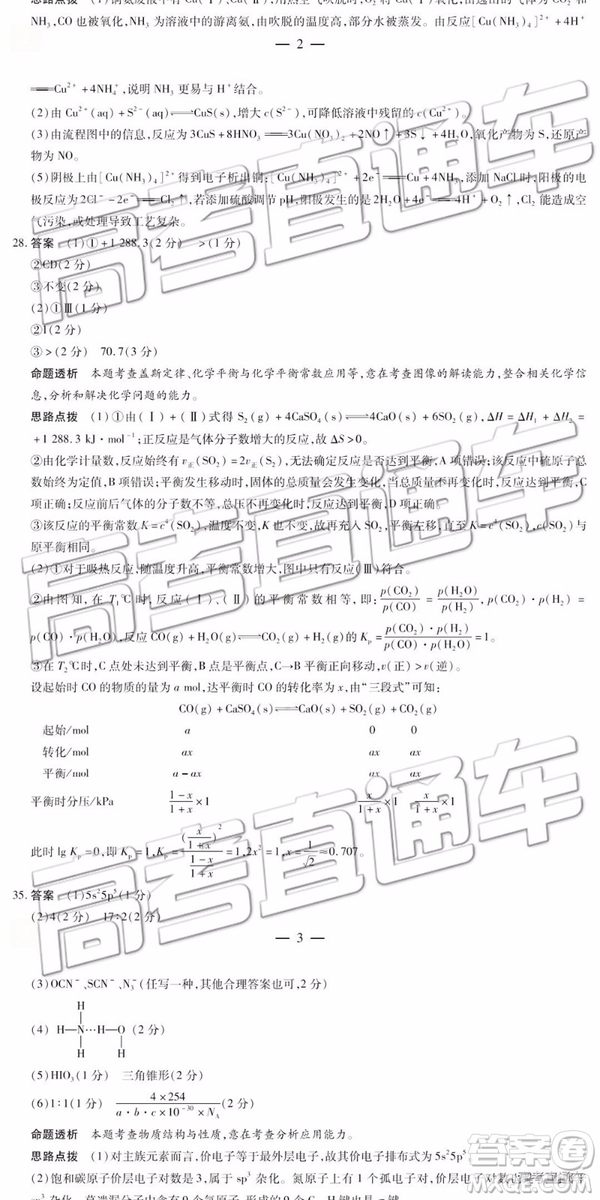 NH₃、CO也被氧化,NH₃为溶液中的游离氨,由吹脱的温度高,部分水被蒸发。由反应[Cu(NH₃)₄]²⁺+4H⁺
— 2 —
══Cu²⁺+4NH₄⁺,说明NH₃更易与H⁺结合。
(2)由Cu²⁺(aq)+S²⁻(aq)⇌CuS(s),增大c(S²⁻),可降低溶液中残留的c(Cu²⁺)。
(3)由流程图中的信息,反应为3CuS+8HNO₃══3Cu(NO₃)₂+2NO↑+3S↓+4H₂O,氧化产物为S,还原产
物为NO。
(5)阴极上由[Cu(NH₃)₄]²⁺得到电子析出铜:[Cu(NH₃)₄]²⁺+2e⁻══Cu+4NH₃,添加NaCl时;阳极的电
极反应为2Cl⁻−2e⁻══Cl₂↑,若添加硫酸调节pH,阳极发生的是2H₂O+4e⁻══4H⁺+O₂↑,Cl₂能造成空
气污染,或处理导致工艺复杂。
28. 答案 (1)①+1 288.3(2分) >(1分)
②CD(2分)
③不变(2分)
(2)①Ⅲ(1分)
②1(2分)
③>(2分) 70.7(3分)
命题透析 本题考查盖斯定律、化学平衡与化学平衡常数应用等,意在考查图像的解读能力,整合相关化学信
息,分析和解决化学问题的能力。
思路点拨 (1)①由(Ⅰ)+(Ⅱ)式得S₂(g)+4CaSO₄(s)⇌4CaO(s)+6SO₂(g),ΔH=ΔH₁+ΔH₂=
+1 288.3 kJ·mol⁻¹;正反应是气体分子数增大的反应,故ΔS>0。
②由化学计量数,反应始终有v正(SO₂)=2v正(S₂),无法确定反应是否达到平衡,A项错误;该反应中硫原子总
数始终为定值,B项错误;平衡发生移动时,固体的总质量会发生变化,当总质量不再变化时,反应达到平衡,C
项正确;反应前后气体的分子数不等,总压不再变化时,反应达到平衡,D项正确。
③该反应的平衡常数K=c⁶(SO₂),温度不变,K也不变,故再充入SO₂,平衡左移,直至K=c⁶(SO₂),c(SO₂)与
原平衡相同。
(2)①对于吸热反应,随温度升高,平衡常数增大,图中只有反应(Ⅲ)符合。
②由图知,在T₁℃时,反应(Ⅰ)、(Ⅱ)的平衡常数相等,即:p(CO₂)/p(CO)=p(H₂O)/p(H₂),p(CO₂)·p(H₂)=
p(CO)·p(H₂O),反应CO(g)+H₂O(g)⇌CO₂(g)+H₂(g)的Kp=p(CO₂)·p(H₂)/p(CO)·p(H₂O)=1。
③在T₂℃时,C点处未达到平衡,B点是平衡点,C→B平衡正向移动,v(正)>v(逆)。
设起始时CO的物质的量为a mol,达平衡时CO的转化率为x,由“三段式”可知:
CO(g)+CaSO₄(s)⇌CaO(s)+SO₂(g)+CO₂(g)
起始/mol a 0 0
转化/mol ax ax ax
平衡/mol a−ax ax ax
平衡时分压/kPa (1−x)/(1+x)×1 x/(1+x)×1 x/(1+x)×1
此时lg Kp=0,即Kp=1,Kp=(x/(1+x))²/((1−x)/(1+x))=1,2x²=1,x=1/√2≈0.707。
35. 答案 (1)5s²5p⁵(1分)
(2)4(2分) 17:2(2分)
— 3 —
(3)OCN⁻、SCN⁻、N₃⁻(任写一种,其他合理答案也可,2分)
(4) H—N(H)(H)···H—O—H(2分)
(5)HIO₃(1分) 三角锥形(2分)
(6)1:1(1分) 4×254/(a·b·c×10⁻³⁰×N_A)(2分)
命题透析 本题考查物质结构与性质,意在考查分析应用能力。
思路点拨 (1)对主族元素而言,价电子等于最外层电子,故其价电子排布式为5s²5p⁵。
(2)饱和碳原子价层电子对数是3,sp³杂化。氮原子上有1个孤电子对,价层电子对数
高考直通车
答案圈